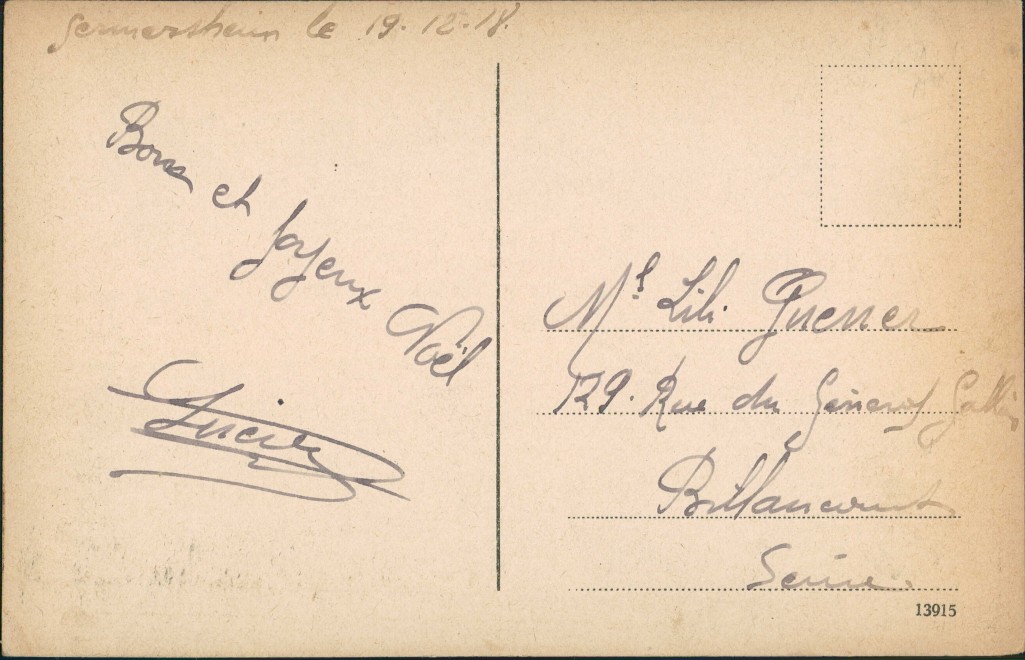 Germersheim le 19-12-18.
Bon et Joyeux Noël
Lucien
Mle Lili
129. Rue du Général
Billancourt
Seine.
13915